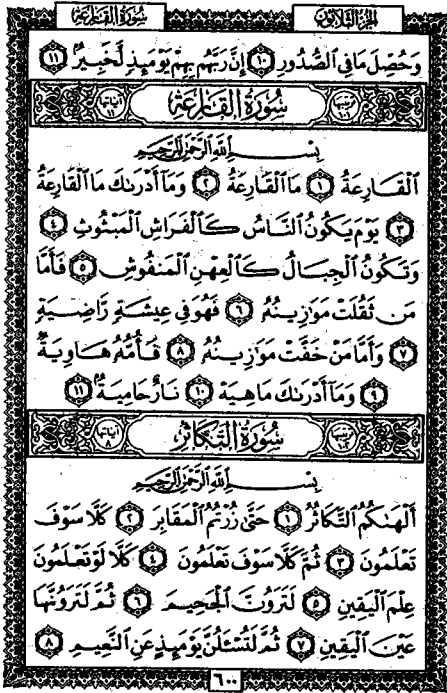 سُورَةُ القَارِعَةِ الجُزْءُ الثَّلَاثُونَ
وَحُصِّلَ مَا فِي ٱلصُّدُورِ ١٠ إِنَّ رَبَّهُم بِهِمْ يَوْمَئِذٍ لَّخَبِيرٌۢ ١١
ترتيبها ١٠١ سُورَةُ القَارِعَةِ آياتها ١١
بِسْمِ ٱللَّهِ ٱلرَّحْمَٰنِ ٱلرَّحِيمِ
ٱلْقَارِعَةُ ١ مَا ٱلْقَارِعَةُ ٢ وَمَآ أَدْرَىٰكَ مَا ٱلْقَارِعَةُ
٣ يَوْمَ يَكُونُ ٱلنَّاسُ كَٱلْفَرَاشِ ٱلْمَبْثُوثِ ٤
وَتَكُونُ ٱلْجِبَالُ كَٱلْعِهْنِ ٱلْمَنفُوشِ ٥ فَأَمَّا
مَن ثَقُلَتْ مَوَٰزِينُهُۥ ٦ فَهُوَ فِي عِيشَةٍ رَّاضِيَةٍ
٧ وَأَمَّا مَنْ خَفَّتْ مَوَٰزِينُهُۥ ٨ فَأُمُّهُۥ هَاوِيَةٌ
٩ وَمَآ أَدْرَىٰكَ مَا هِيَهْ ١٠ نَارٌ حَامِيَةٌۢ ١١
ترتيبها ١٠٢ سُورَةُ التَّكَاثُرِ آياتها ٨
بِسْمِ ٱللَّهِ ٱلرَّحْمَٰنِ ٱلرَّحِيمِ
أَلْهَىٰكُمُ ٱلتَّكَاثُرُ ١ حَتَّىٰ زُرْتُمُ ٱلْمَقَابِرَ ٢ كَلَّا سَوْفَ
تَعْلَمُونَ ٣ ثُمَّ كَلَّا سَوْفَ تَعْلَمُونَ ٤ كَلَّا لَوْ تَعْلَمُونَ
عِلْمَ ٱلْيَقِينِ ٥ لَتَرَوُنَّ ٱلْجَحِيمَ ٦ ثُمَّ لَتَرَوُنَّهَا
عَيْنَ ٱلْيَقِينِ ٧ ثُمَّ لَتُسْـَٔلُنَّ يَوْمَئِذٍ عَنِ ٱلنَّعِيمِ ٨
٦٠٠